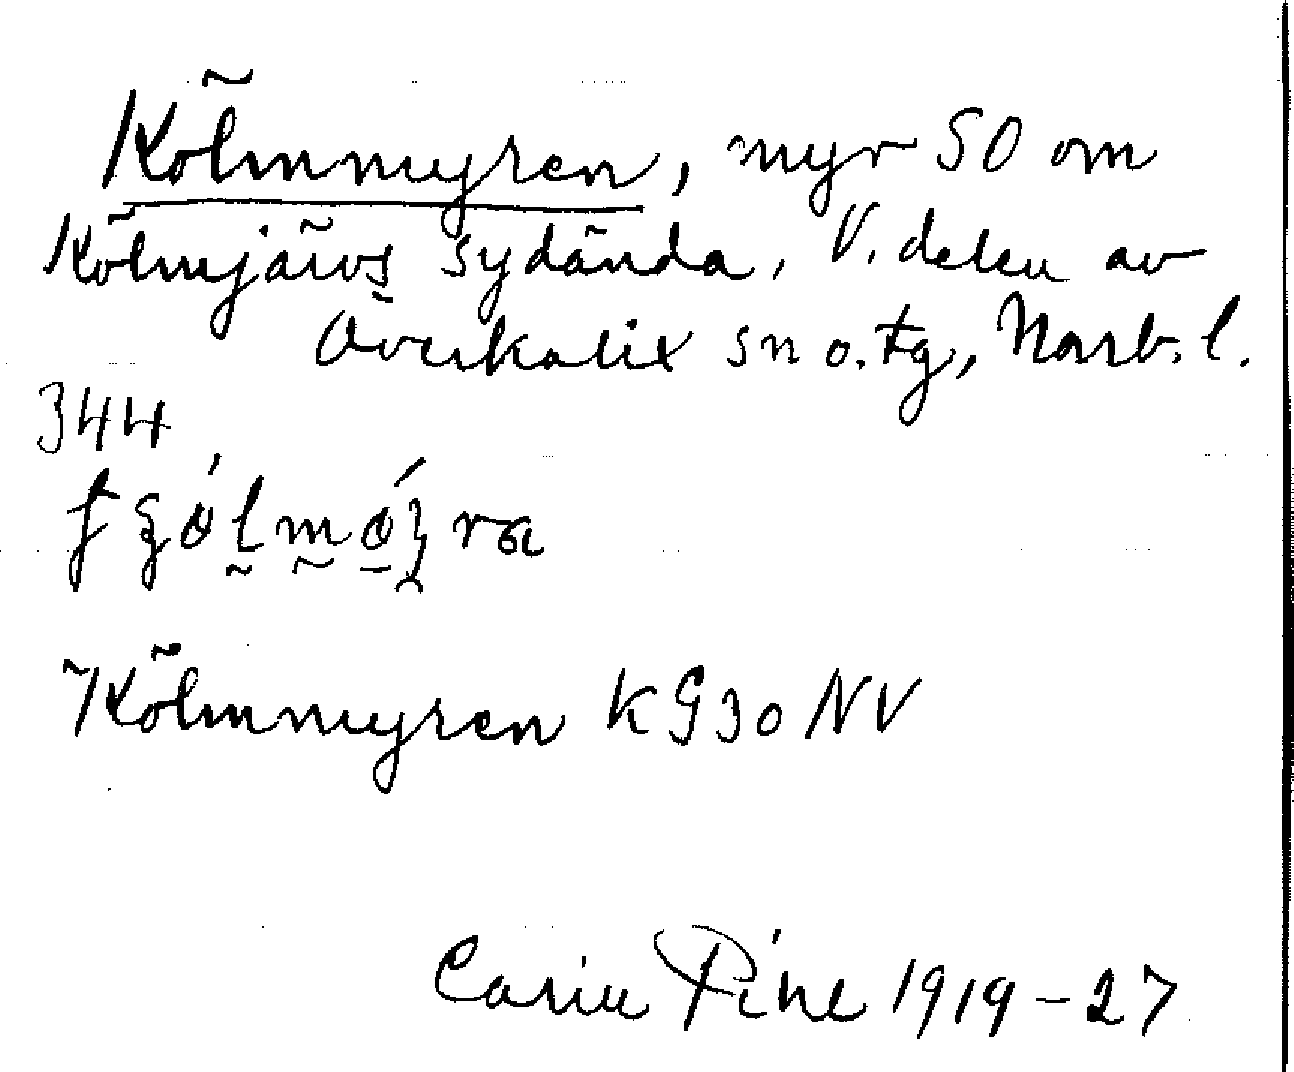 Kölmmyren, myr SO om
Kölmjärvs sydända, V. delen av
Överkalix sn o. tg, Norrb. l.
344
Kölmmyren K G 30 NV
Carin Pihl 1919-27